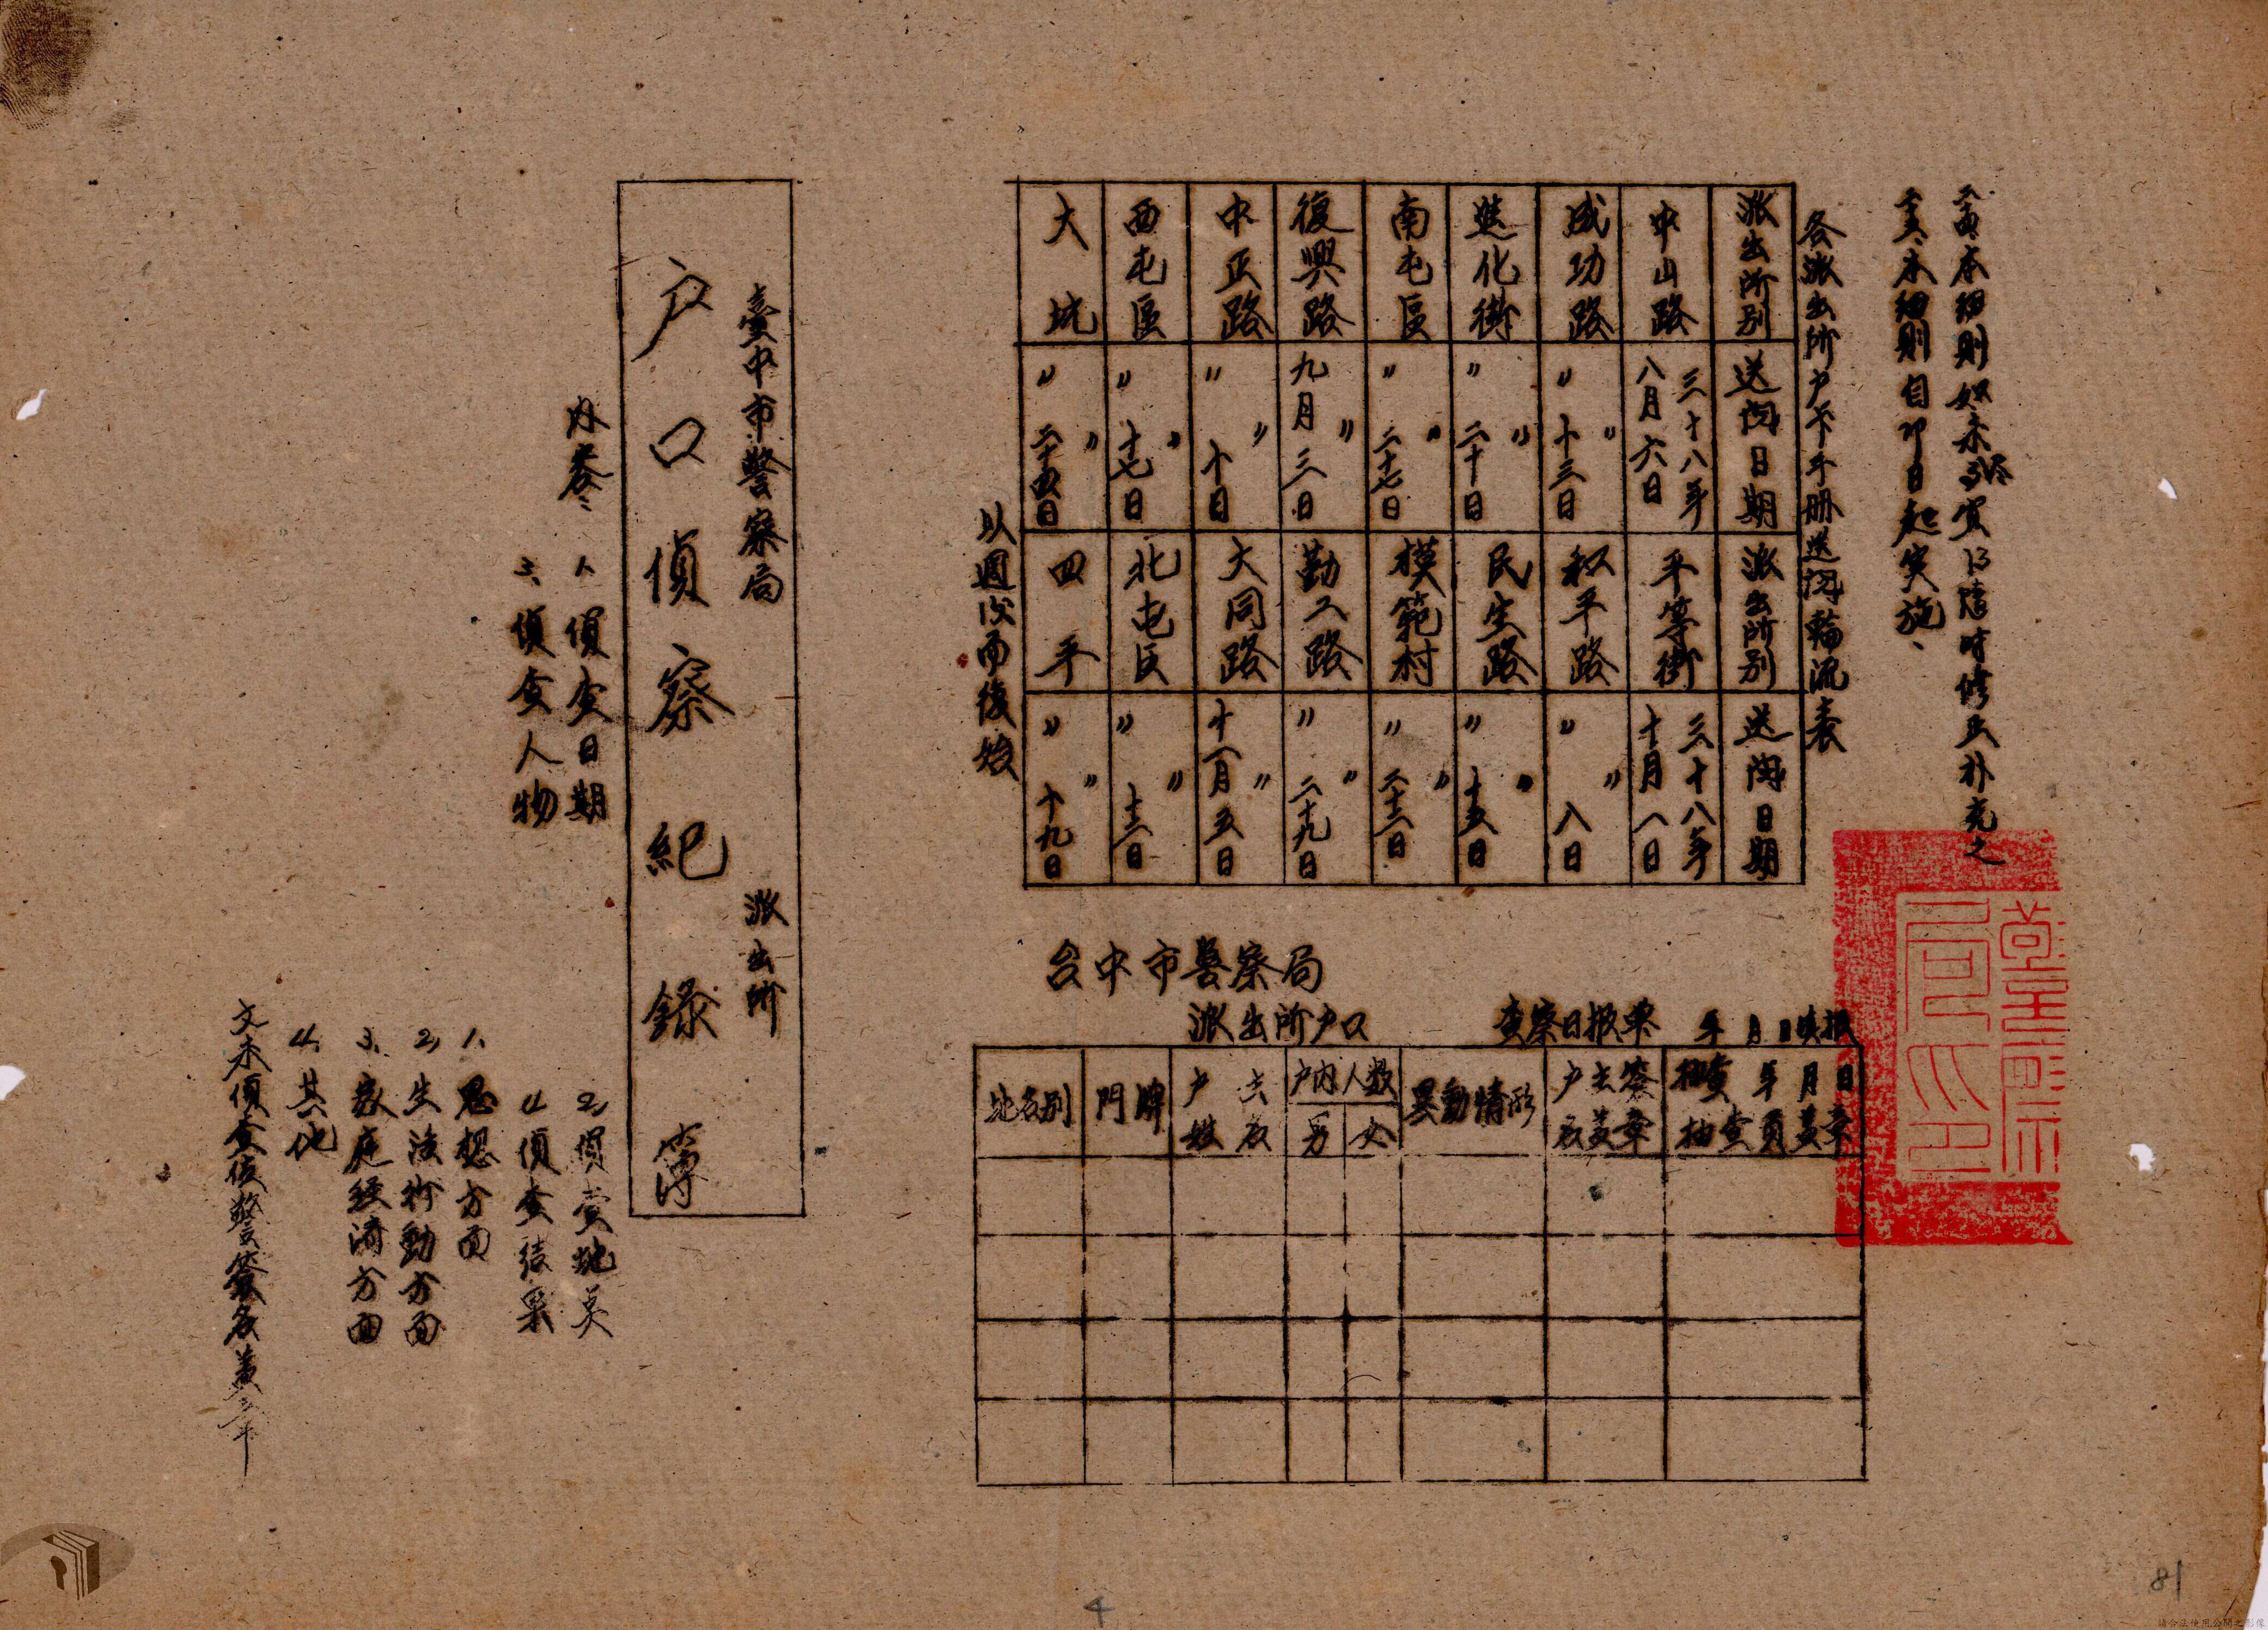 本細則如未盡事宜得隨時修正补充之
本細則自即日起实施、
各派出所户卡手册送閱輪流表
派出所別 送閱日期 派出所別 送閱日期
中山路 三十八年八月六日 平等街 三十八年十月一日
成功路 〃 〃 十三日 和平路 〃 〃 八日
進化街 〃 〃 二十日 民生路 〃 〃 十五日
南屯區 〃 〃 二十七日 模範村 〃 〃 二十二日
復興路 〃 九月三日 勤工路 〃 〃 二十九日
中正路 〃 〃 十日 大同路 〃 十一月五日
西屯區 〃 〃 十七日 北屯区 〃 〃 十二日
大坑 〃 〃 二十四日 四平 〃 〃 十九日
以週次而復始
台中市警察局
派出所户口 查察日报票 年 月 日填报
地名別 門牌 户主姓名 户内人数 男 女 異動情形 户主簽名蓋章 抽查 年 月 日 抽查員蓋章
臺中市警察局 派出所
户口偵察紀錄簿
内容、 1、偵查日期 2、偵查地点
3、偵查人物 4、偵查結果
1、思想方面
2、生活行動方面
3、家庭経済方面
4、其他
文末偵查後警簽名蓋章
4
81